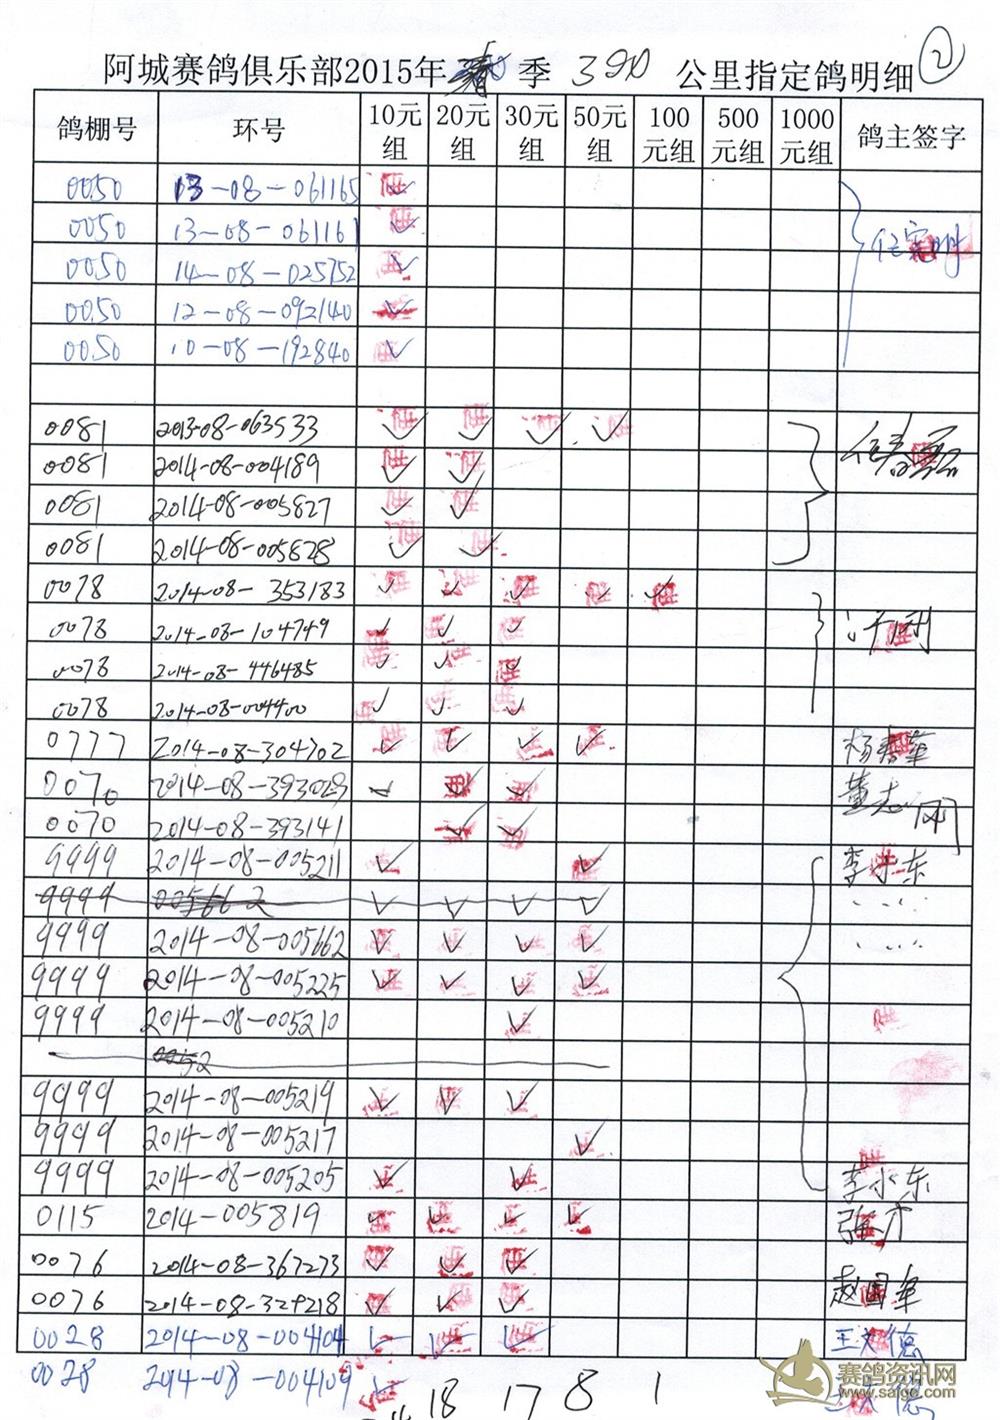 ②
阿城赛鸽俱乐部2015年春季 390 公里指定鸽明细
鸽棚号 环号 10元组 20元组 30元组 50元组 100元组 500元组 1000元组 鸽主签字
0050 13-08-061165 ✓
0050 13-08-061161 ✓
0050 14-08-025752 ✓
0050 12-08-092140 ✓
0050 10-08-192840 ✓
0081 2013-08-063533 ✓ ✓ ✓ ✓
0081 2014-08-004189 ✓ ✓
0081 2014-08-005827 ✓ ✓
0081 2014-08-005828 ✓ ✓
0078 2014-08-353183 ✓ ✓ ✓ ✓ ✓
0078 2014-08-104749 ✓ ✓ ✓
0078 2014-08-446485 ✓ ✓ ✓
0078 2014-08-004400 ✓ ✓ ✓
0777 2014-08-304702 ✓ ✓ ✓ ✓ 杨秀华
0070 2014-08-393029 ✓ ✓ ✓ 董志刚
0070 2014-08-393141 ✓ ✓
9999 2014-08-005211 ✓ ✓ 李永东
9999 005662 ✓ ✓ ✓ ✓
9999 2014-08-005662 ✓ ✓ ✓ ✓
9999 2014-08-005225 ✓ ✓ ✓ ✓
9999 2014-08-005210 ✓
0052
9999 2014-08-005219 ✓ ✓ ✓
9999 2014-08-005217 ✓
9999 2014-08-005205 ✓ ✓ 李永东
0115 2014-005819 ✓ ✓ ✓ ✓
0076 2014-08-367273 ✓ ✓ ✓
0076 2014-08-329218 ✓ ✓ ✓ 赵国军
0028 2014-08-004104 ✓ ✓ ✓ 王文德
0028 2014-08-004109 ✓
18 17 8 1
赛鸽资讯网
www.saigd.com